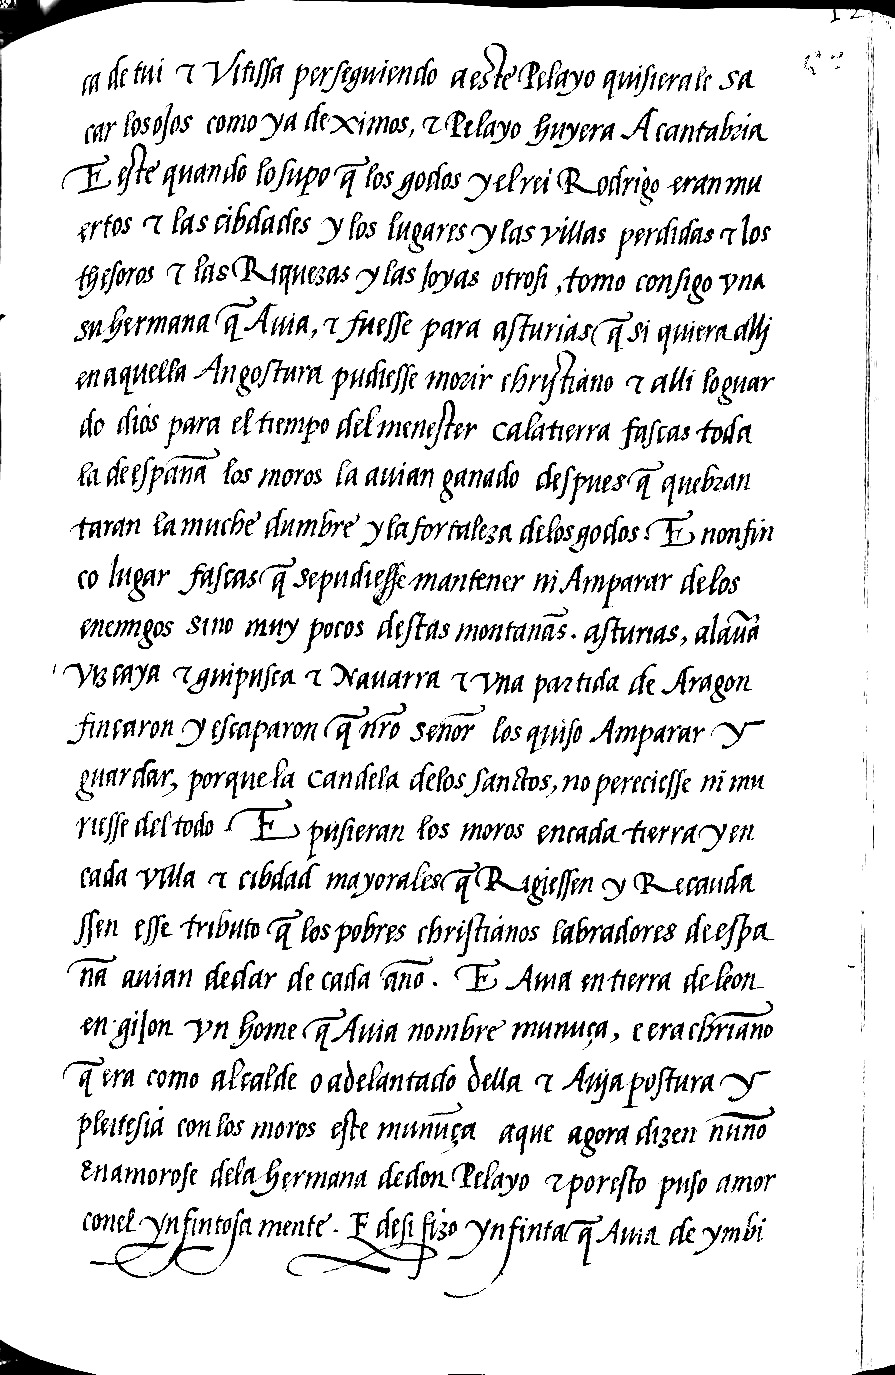 ca de tui τ Vitissa perseguiendo a este Pelayo quisierale sa
car los ojos como ya deximos, τ Pelayo huyera A cantabria
E este quando lo supo q̃ los godos y el rei Rodrigo eran mu
ertos τ las cibdades y los lugares y las villas perdidas τ los
thesoros τ las Riquezas y las joyas otrosi, tomo consigo vna
su hermana q̃ Auia, τ fuesse para asturias q̃ si quiera allj
en aquella Angostura pudiesse morir christiano τ alli lo guar
do dios para el tiempo del menester ca la tierra fascas toda
la de españa los moros la auian ganado despues q̃ quebran
taran la muchedumbre y la fortaleza de los godos. E non fin
co lugar fascas q̃ se pudiesse mantener ni Amparar de los
enemigos sino muy pocos destas montañas. asturias, alaua
vizcaya τ guipusca τ Nauarra τ vna partida de Aragon
fincaron y escaparon q̃ nr̃o señor los quiso Amparar y
guardar, porque la candela de los sanctos, no pereciesse ni mu
riesse del todo E pusieran los moros en cada tierra y en
cada villa τ cibdad mayorales q̃ Rigiessen y Recauda
ssen esse tributo q̃ los pobres christianos labradores de espa
ña auian de dar de cada año. E Auia en tierra de leon
en gijon vn home q̃ Auia nombre munuça, e era chr̃iano
q̃ era como alcalde o adelantado della τ Auja postura y
pleitesia con los moros este munuça a que agora dizen nuño
Enamorose de la hermana de don Pelayo τ por esto puso amor
con el ynfintosa mente. E desi fizo ynfinta q̃ Auia de ymbi